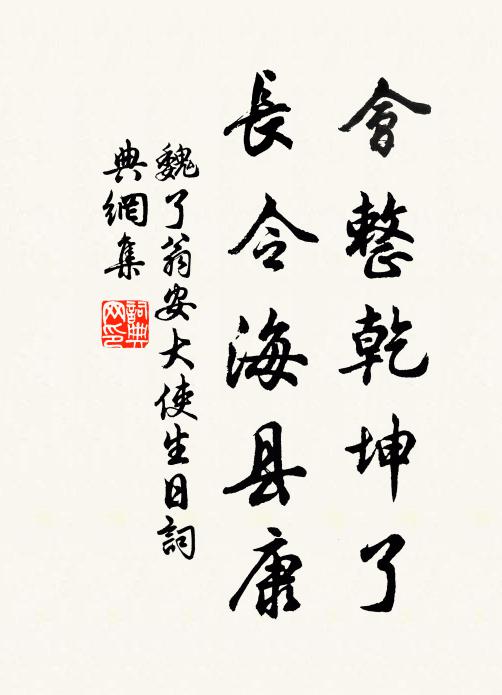 會整乾坤了
長令海县康
魏了翁安大使生日詞
典網集
詞典
网印